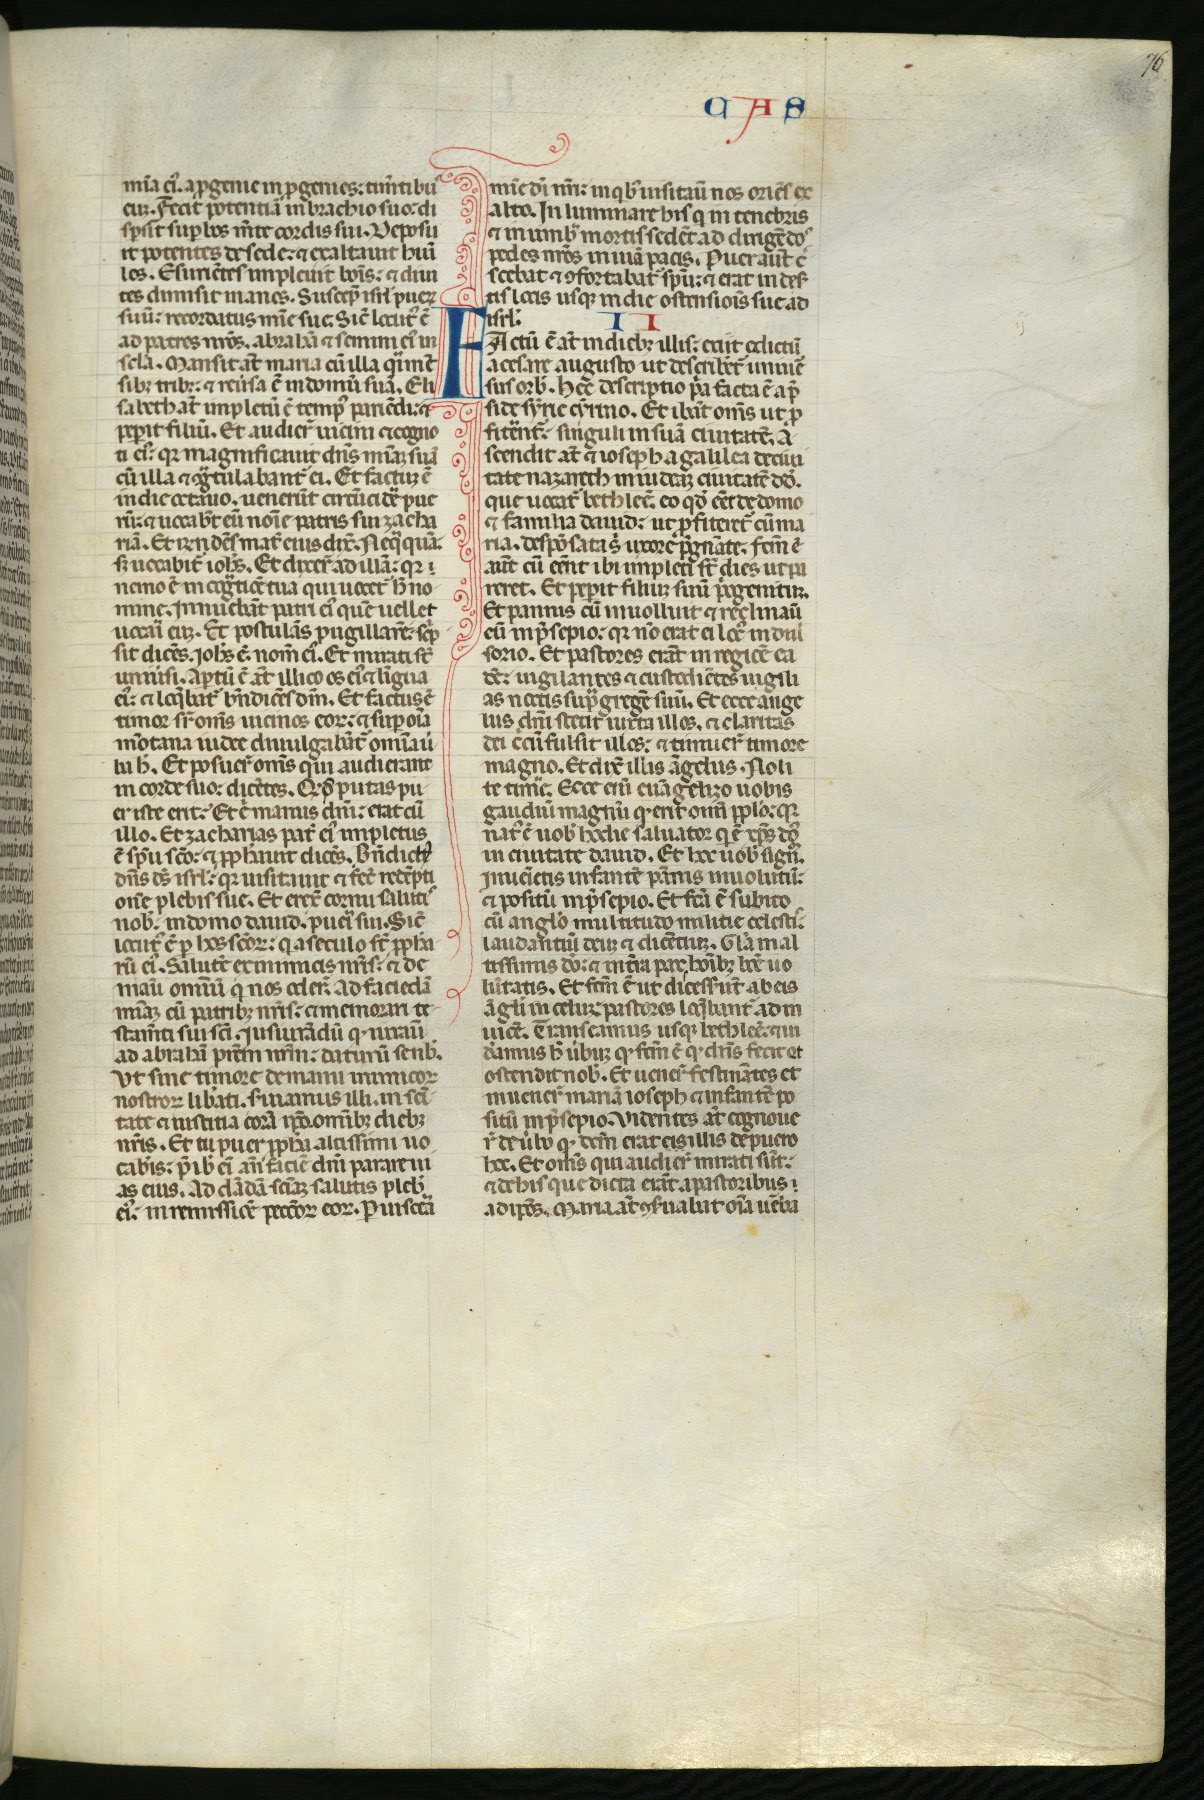 76
CAS
mīa eī. a ꝓgenie in ꝓgenies: timētibꝰ
eum. Fecit potentiā in brachio suo: di
spsit supbos mēte cordis sui. Deposu
it potentes de sede: ⁊ exaltauit humi
les. Esuriētes impleuit bonis: ⁊ diui
tes dimisit inanes. Suscep̄ isrl̄ pueꝝ
suū: recordatus mīe sue. Sic̄ locutꝰ ē
ad patres nr̄os. abrahā ⁊ semini eiꝰ in
scl̄a. Mansit at̄ maria cū illa qͣi mēs
sibꝫ tribꝫ: ⁊ reūsa ē in domū suā. Eli
sabeth at̄ impletū ē tempꝰ pariēdi: ⁊
peperit filiū. Et audier̄ uicini ⁊ cogno
ti eiꝰ: qꝛ magnificauit dn̄s mīaꝫ suā
cū illa ⁊ ꝯgͣtulabant̄ ei. Et factuꝫ ē
in die octauo. uenerūt circūcidē pue
rū: ⁊ uocabāt eū noīe patris sui zacha
riā. Et rn̄dēs mat̄ eius dix̄. Neqͣquā.
sꝫ uocabit̄ ioh̄s. Et dixer̄ ad illā: qꝛ
nemo ē in cogͣtiōe tua qui uocet̄ h̄ no
mine. Innuebāt patri eiꝰ quē uellet
uocari eū. Et postulās pugillarē: sc͛p
sit dicēs. ioh̄s ē nom̄ eiꝰ. Et mirati st̄
uniūsi. Aptū ē at̄ illico os eiꝰ ⁊ lingua
eiꝰ: ⁊ loqͣbat̄ bn̄dicēs dm̄. Et factus ē
timor sr̄ om̄s uicinos eoꝝ: ⁊ sup oīa
mōtana iudee diuulgabāt̄ omīa ū
ba h̄. Et posuer̄ om̄s qui audierant
in corde suo: dicētes. Qͥs putas pu
er iste erit? Et ē manus dn̄i: erat cū
illo. Et zacharias pat̄ eiꝰ impletus
ē spū sc̄o: ⁊ ꝓphauit dicēs. Bn̄dictꝰ
dn̄s dꝰs isrl̄: qꝛ uisitauit ⁊ fec̄ redēpti
onē plebis sue. Et erex̄ cornu salutis
nob̄: in domo dauid. pueri sui. Sic̄
locutꝰ ē ꝑ hos sc̄oꝝ: q̄ a seculo st̄ ꝓpha
rū eiꝰ. Salutē ex inimicis nr̄is: ⁊ de
manu omniū q̄ nos oder̄. Ad faciēdā
mīaꝫ cū patribꝫ nr̄is: ⁊ memorari te
stamēti sui sc̄i. Iusiurādū qͦ iurauit
ad abrahā prēm nr̄m: daturū se nob̄.
Vt sine timore de manu inimicoꝝ
nostroꝝ libati. s̄uiamus illi. In sc̄i
tate ⁊ iustitia corā ip̄o. omnibꝫ diebꝫ
nr̄is. Et tu puer ꝓpha altissimi uo
caberis: p̄ibis ei an̄ faciē dn̄i parare ui
as eius. Ad dādā scīaꝫ salutis plebi
eiꝰ: in remissionē pecc̄oꝝ eoꝝ. P uiscera
mīe di nr̄i: in qͥbꝰ uisitauit nos oriēs ex
alto. Inluminare his q̄ in tenebris
⁊ in umb̄ mortis sedēt ad dirigēdos
pedes nr̄os in uiā pacis. Puer aut̄ c̄
scebat ⁊ ꝯfortabat̄ spū: ⁊ erat in des
tis locis usqꝫ in die ostensiōis sue ad
isrl̄.
II
FActū ē at̄ in diebꝫ illis: exiit edictū
a cesare augusto ut describet̄ uniuē
sus orb̄. Hec descriptio p̄a facta ē a p̄
side syrie cyrino. Et ibāt om̄s ut ꝓ
fitent̄: singuli in suā ciuitatē. A
scendit at̄ ⁊ ioseph a galilea de ciui
tate nazareth in iudeaꝫ ciuitatē dd̄.
que uocat̄ bethleē. eo qd̄ eēt de domo
⁊ familia dauid: ut ꝓfiteret̄ cū ma
ria. desponsata s̄ uxore p̄gnāte. fcm̄ ē
aut̄ cū eēnt ibi impleti st̄ dies ut pa
reret. Et pepit filiuꝫ suū p̄mogenituꝫ.
Et pannis eū inuoluit ⁊ reclinauit
eū in p̄sepio: qꝛ nō erat ei locꝰ in diu
sorio. Et pastores erāt in regiōe ea
dē: uigilantes ⁊ custodiētes uigili
as noctis sup gregē suū. Et ecce ange
lus dn̄i stetit iuxta illos. ⁊ claritas
dei c̄cūfulsit illos: ⁊ timuer̄ timore
magno. Et dix̄ illis angelus. Noli
te timē. Ecce em̄ euāgelizo uobis
gaudiū magnū qͦ erit omī pplo: qꝛ
natꝰ ē uob̄ hodie saluator q̄ ē xp̄s dꝰs
in ciuitate dauid. Et hoc uob̄ signū.
Inuēietis infantē pānis inuolutū:
⁊ positū in p̄sepio. Et fcā ē subito
cū angl̄o multitudo militie celestis
laudantiū deuꝫ ⁊ dicētiuꝫ. Gl̄a in al
tissimis dō: ⁊ in t̄ra pax hoībꝫ bone uo
lūtatis. Et fcm̄ ē ut dicesserūt ab eis
āgl̄i in celuꝫ: pastores loqͣbant̄ ad in
uicē. Transeamus usqꝫ bethleē: ⁊ ui
deamus h̄ ūbuꝫ qͦ fcm̄ ē qͦ dn̄s fecit et
ostendit nob̄. Et uener̄ festināntes et
inuener̄ mariā ioseph ⁊ infantē po
situ in p̄sepio. Videntes at̄ cognoue
r̄ de ūbo qͦ dcm̄ erat eis illis de puero
hoc. Et om̄s qui audier̄ mirati sūt:
⁊ de his que dicta erāt a pastoribus
ad ip̄os. Maria at̄ ꝯseruabat oīa uerba